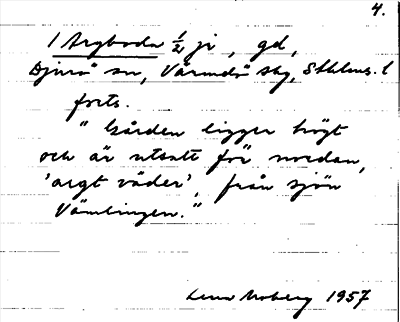 4.
1 Argboda ½ ji, gd,
Djurö sn, Värmdö skg, Sthlms. l
forts.
"Gården ligger högt
och är utsatt för nordan,
'argt väder', från sjön
Vämlingen."
Lena Moberg 1957